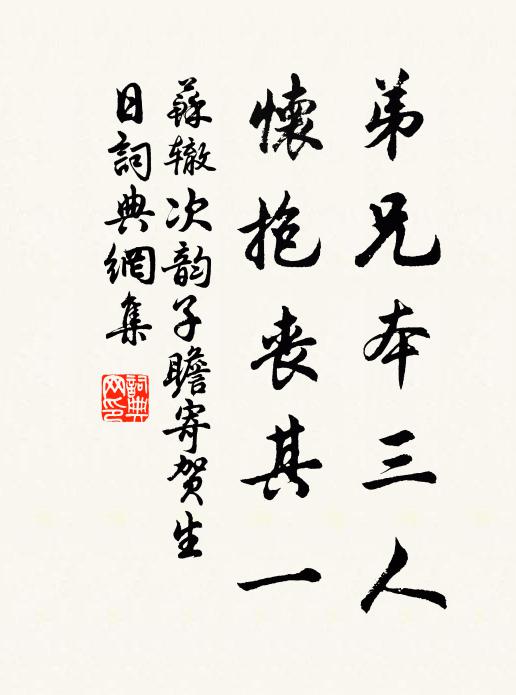 弟兄本三人
懷抱丧其一
蘇辙次韵子瞻寄贺生
日詞典網集
詞典
网印